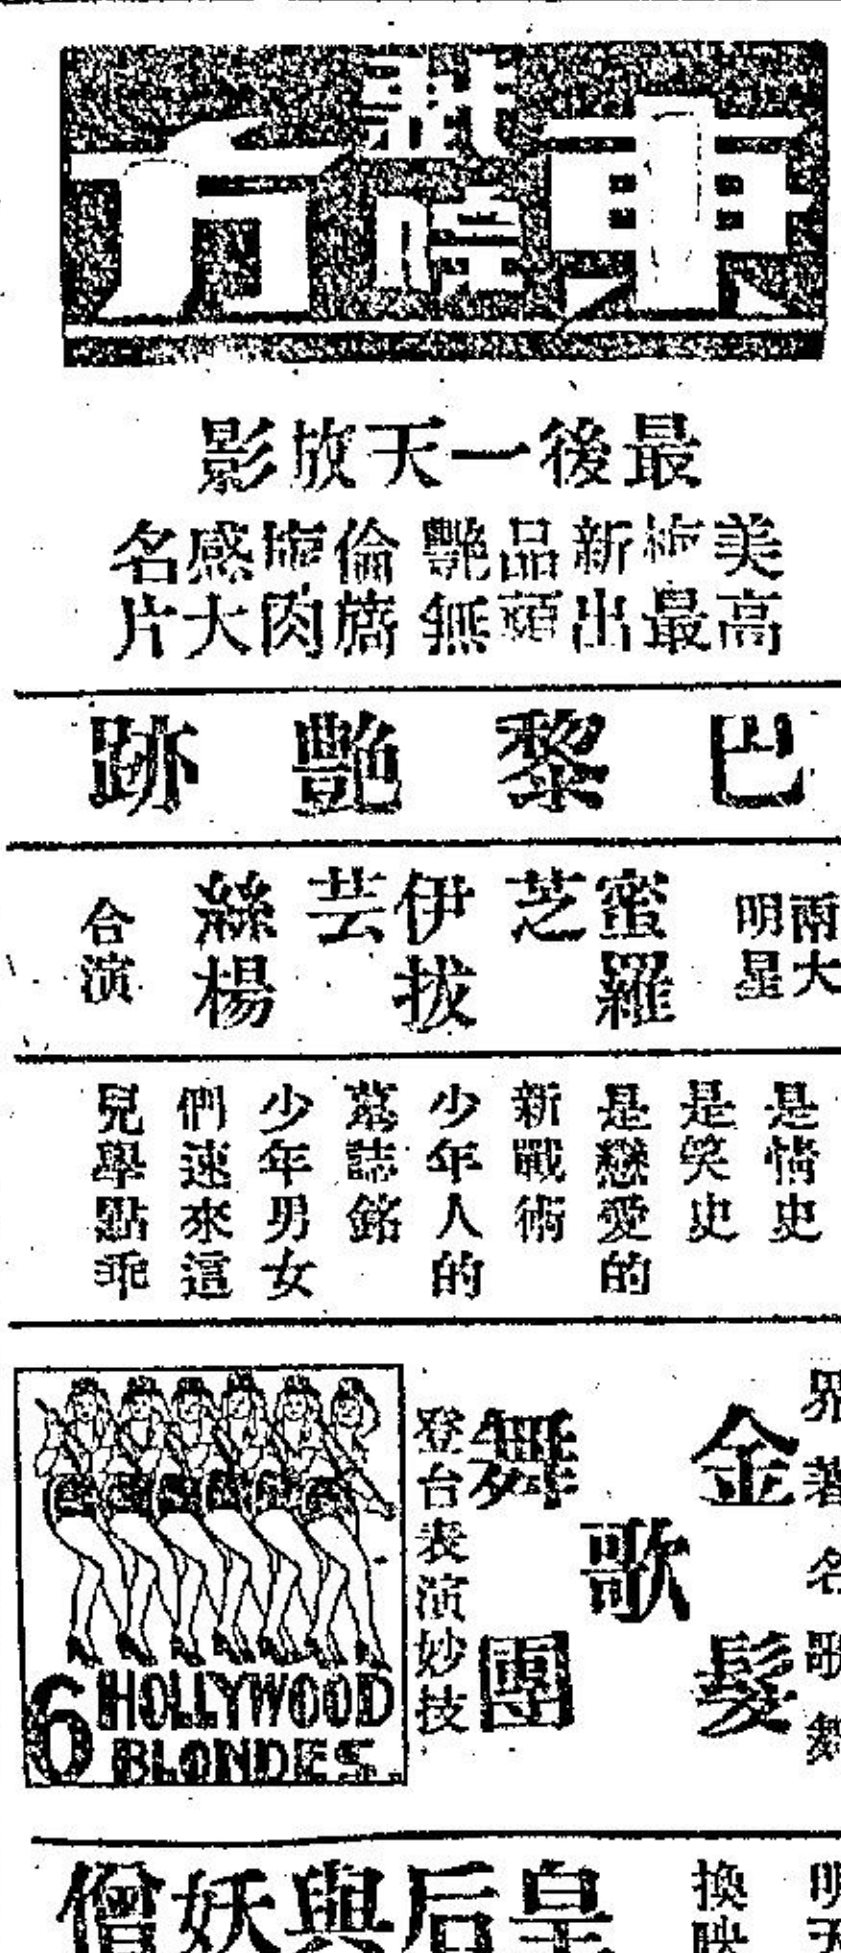 東方戲院
最後一天放影
美高梅最新出品艷無倫旖旎肉感大名片
巴黎艷跡
兩大明星
蜜羅芝伊拔芸絲楊
合演
是情史
是笑史
是戀愛的
新戰術
少年人的
墓誌銘
少年男女
們速來這
兒學點乖
界著名歌舞
金髮歌舞團
登台表演妙技
6 HOLLYWOOD
BLONDES
明天
換映
皇后與妖僧